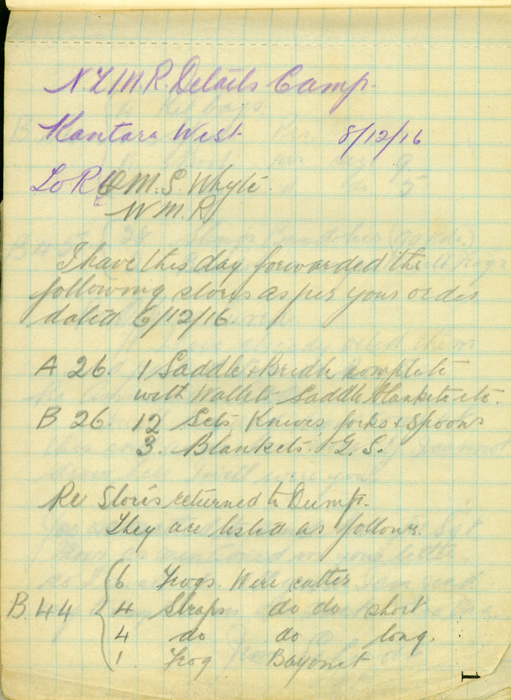 N.Z.M.R. Details Camp.
Kantara West 8/12/16
To R Q M. S Whyte
W M R
I have this day forwarded the
following stores as per your order
dated 6/12/16.
A 26. 1 Saddle & Bridle complete
with Wallets Saddle blankets etc.
B 26. 12 Sets Knives forks & Spoons
3. Blankets. G. S.
Re Stores returned to Dump.
They are listed as follows.
6 Frogs. Wire cutter
B. 44 4 Straps do do short
4 do do long.
1 Frog Bayonet
1